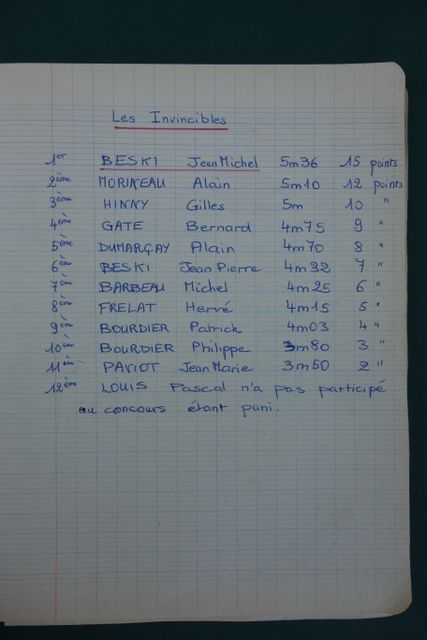 Les Invincibles
1er BESKI Jean Michel 5m36 15 points
2ème MORINEAU Alain 5m10 12 points
3ème HINKY Gilles 5m 10 "
4ème GATE Bernard 4m75 9 "
5ème DUMARÇAY Alain 4m70 8 "
6ème BESKI Jean Pierre 4m32 7 "
7ème BARBEAU Michel 4m25 6 "
8ème FRELAT Hervé 4m15 5 "
9ème BOURDIER Patrick 4m03 4 "
10ème BOURDIER Philippe 3m80 3 "
11ème PAVIOT Jean Marie 3m50 2 "
12ème LOUIS Pascal n'a pas participé
au concours étant puni.